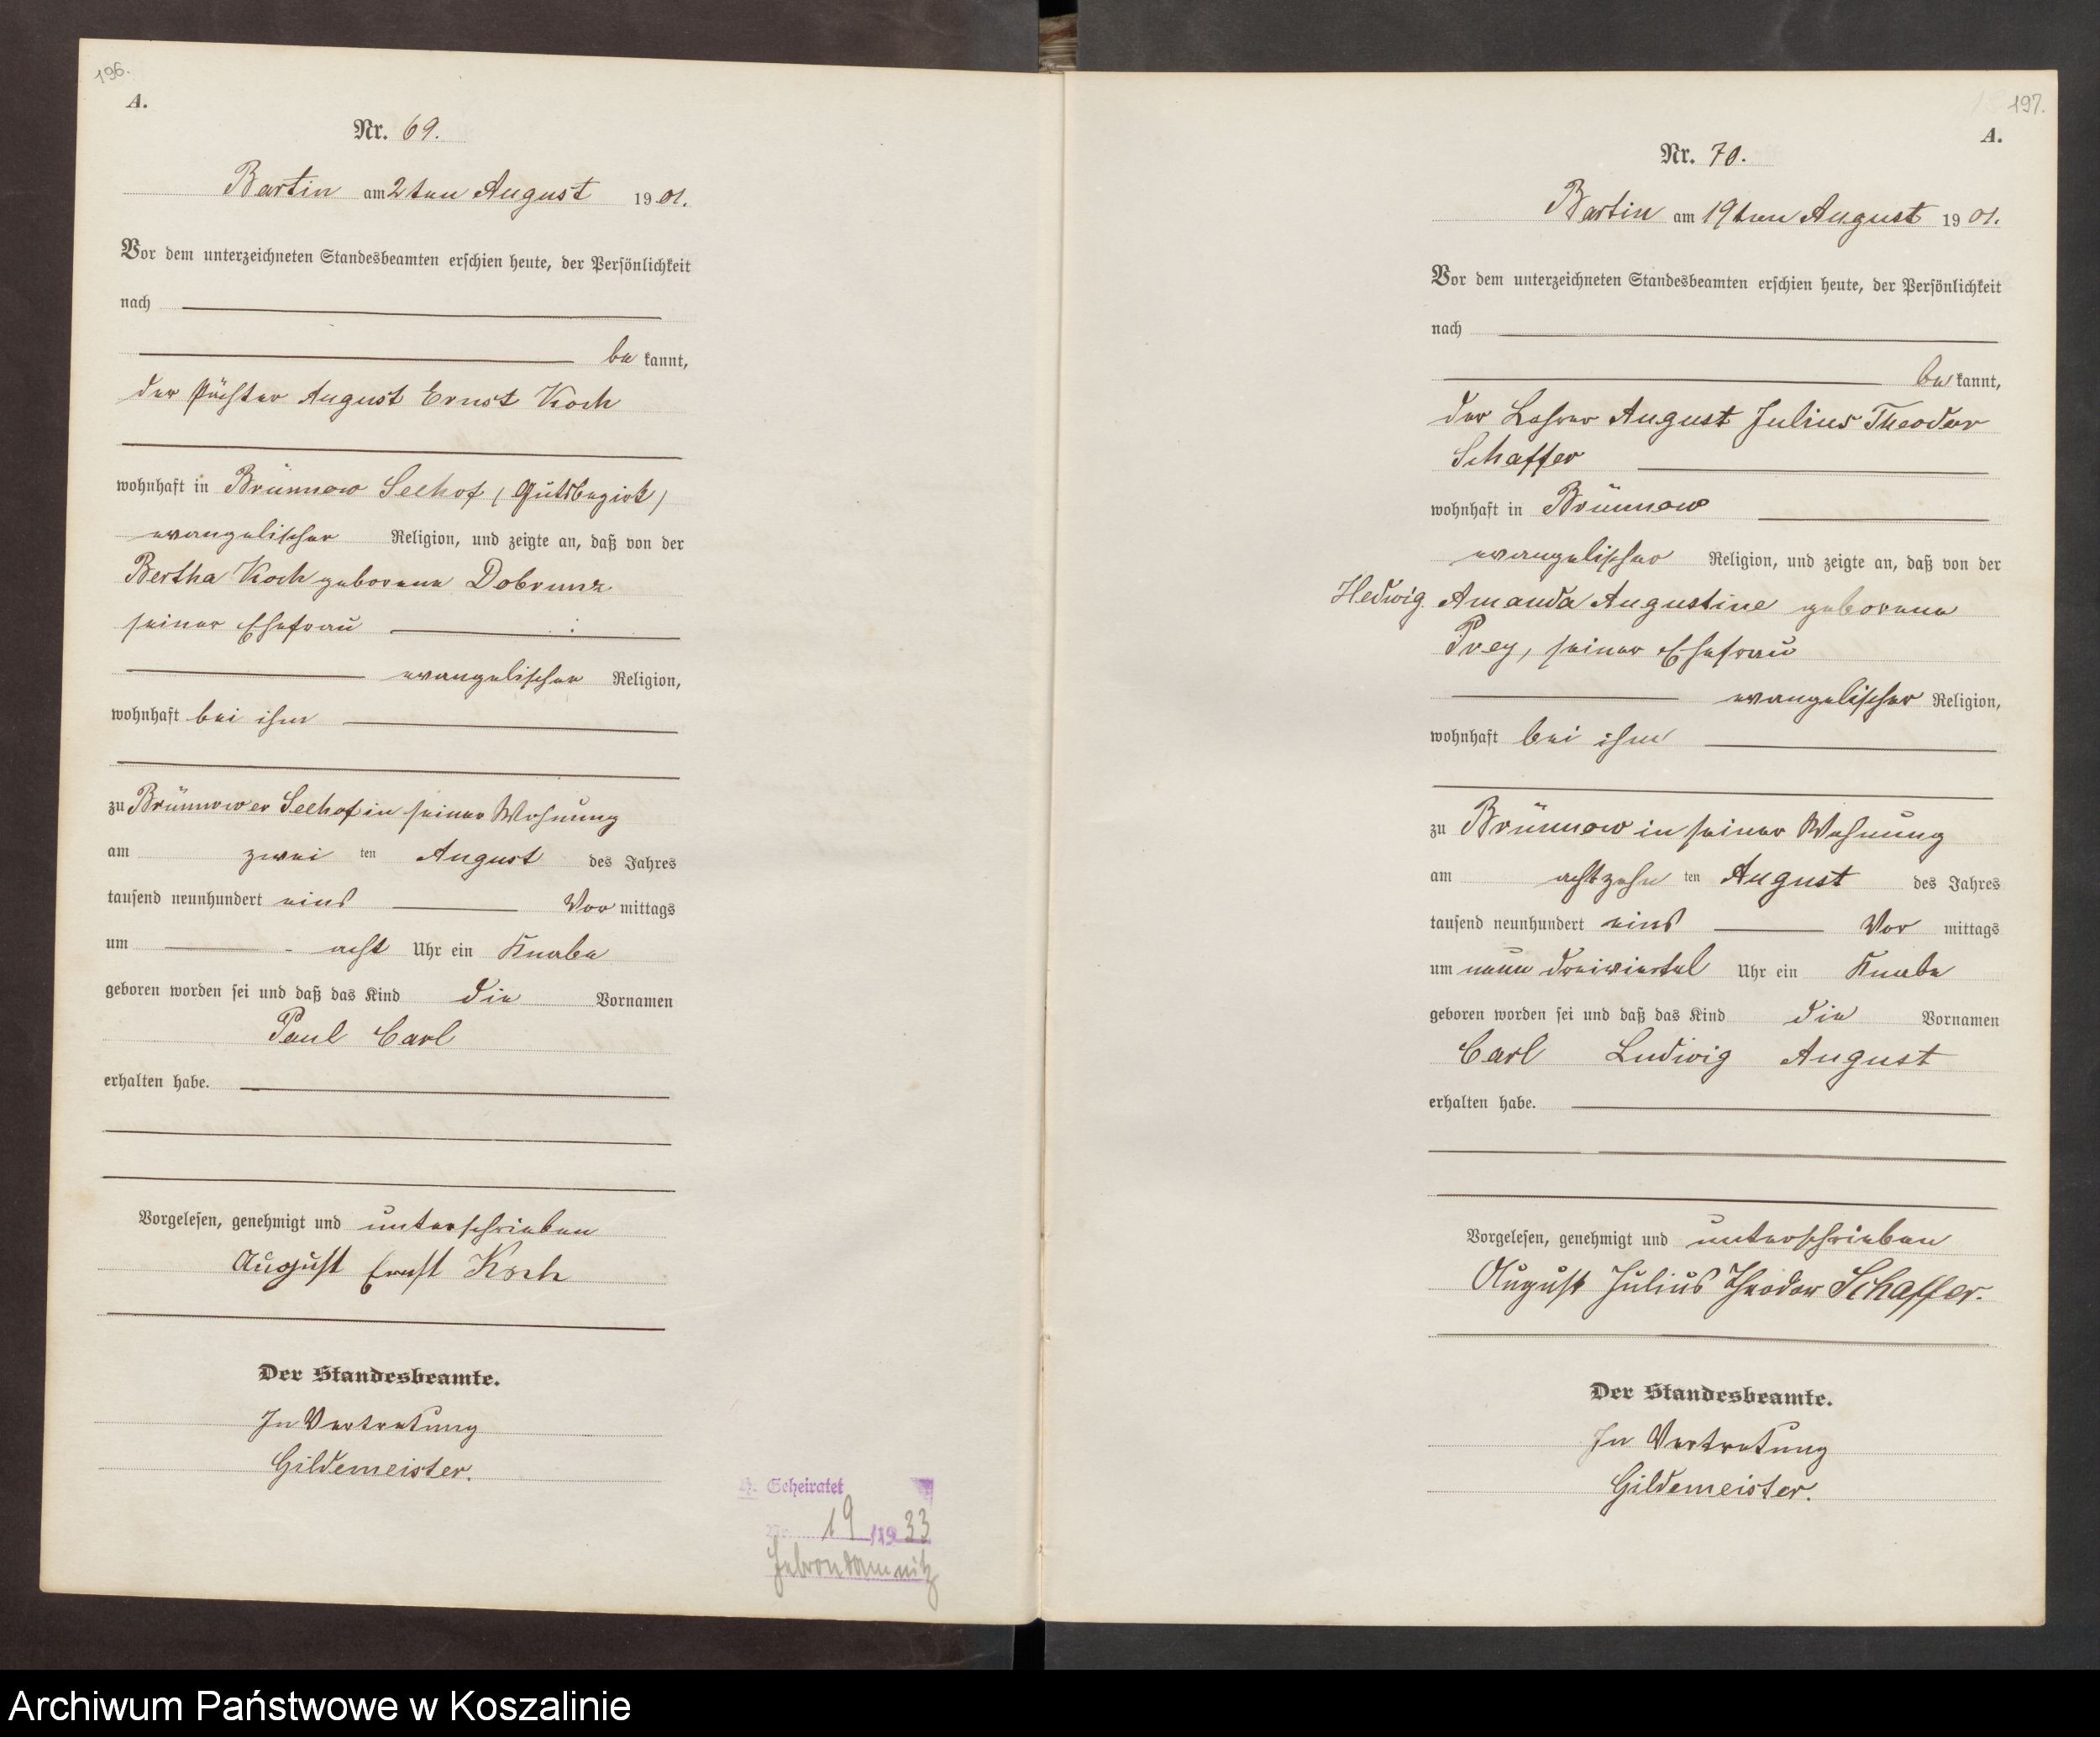 196.
A.
Nr. 69.
Bartin am 2ten August 1901.
Vor dem unterzeichneten Standesbeamten erschien heute, der Persönlichkeit
nach
be kannt,
der Pächter August Ernst Koch
wohnhaft in Brünnow Seehof (Gutsbezirk)
evangelischer Religion, und zeigte an, daß von der
Bertha Koch geborene Dobrunz
seiner Ehefrau
evangelischer Religion,
wohnhaft bei ihm
zu Brünnower Seehof in seiner Wohnung
am zwei ten August des Jahres
tausend neunhundert eins Vor mittags
um acht Uhr ein Knabe
geboren worden sei und daß das Kind die Vornamen
Paul Carl
erhalten habe.
Vorgelesen, genehmigt und unterschrieben
August Ernst Koch
Der Standesbeamte.
In Vertretung
Gildemeister.
H. Geheiratet
Nr. 19/1933
197.
A.
Nr. 70.
Bartin am 19ten August 1901.
Vor dem unterzeichneten Standesbeamten erschien heute, der Persönlichkeit
nach
be kannt,
der Lehrer August Julius Theodor
Schaffer
wohnhaft in Brünnow
evangelischer Religion, und zeigte an, daß von der
Hedwig Amanda Augustine geborene
Prey, seiner Ehefrau
evangelischer Religion,
wohnhaft bei ihm
zu Brünnow in seiner Wohnung
am achtzehn ten August des Jahres
tausend neunhundert eins Vor mittags
um neun dreiviertel Uhr ein Knabe
geboren worden sei und daß das Kind die Vornamen
Carl Ludwig August
erhalten habe.
Vorgelesen, genehmigt und unterschrieben
August Julius Theodor Schaffer.
Der Standesbeamte.
In Vertretung
Gildemeister.
Archiwum Państwowe w Koszalinie